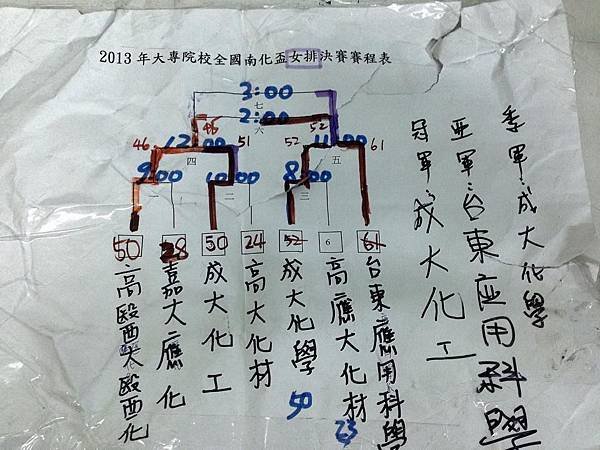 2013年大專院校全國南化盃女排決賽賽程表
3:00
七
2:00
六
46 12:00 46 51 52 52 11:00 61
四 五
9:00 10:00 8:00
一 二 三
50 28 50 24 52 6 61
高醫大醫化
嘉大應化
成大化工
高大化材
成大化學
50
高應大化材
23
台東應用科學
季軍:成大化學
亞軍:台東應用科學
冠軍:成大化工